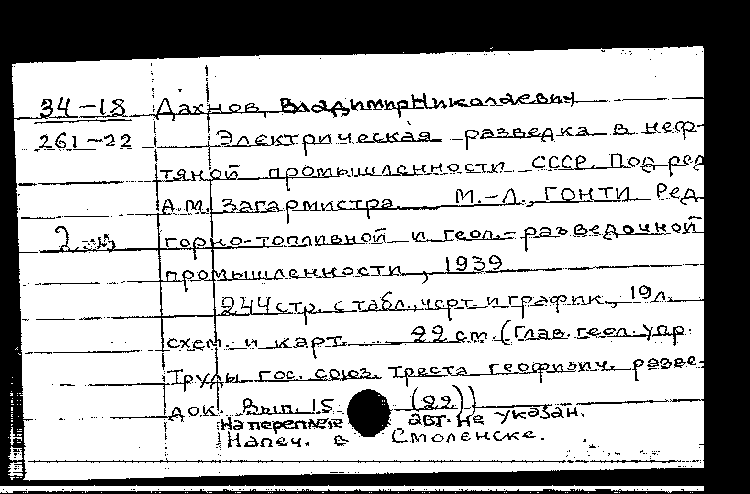 34-18 Дахнов, Владимир Николаевич
261-22 Электрическая разведка в неф-
тяной промышленности СССР. Под ред
А.М. Загармистра. М.-Л., ГОНТИ Ред.
горно-топливной и геол.-разведочной
промышленности, 1939
244 стр. с табл., черт и график., 19 л.
схем. и карт. 22 см. (Глав. геол. упр.
Труды гос. союз. треста геофизич. разве-
док. Вып. 15 (22))
На переплете авт. не указан.
Напеч. в Смоленске.